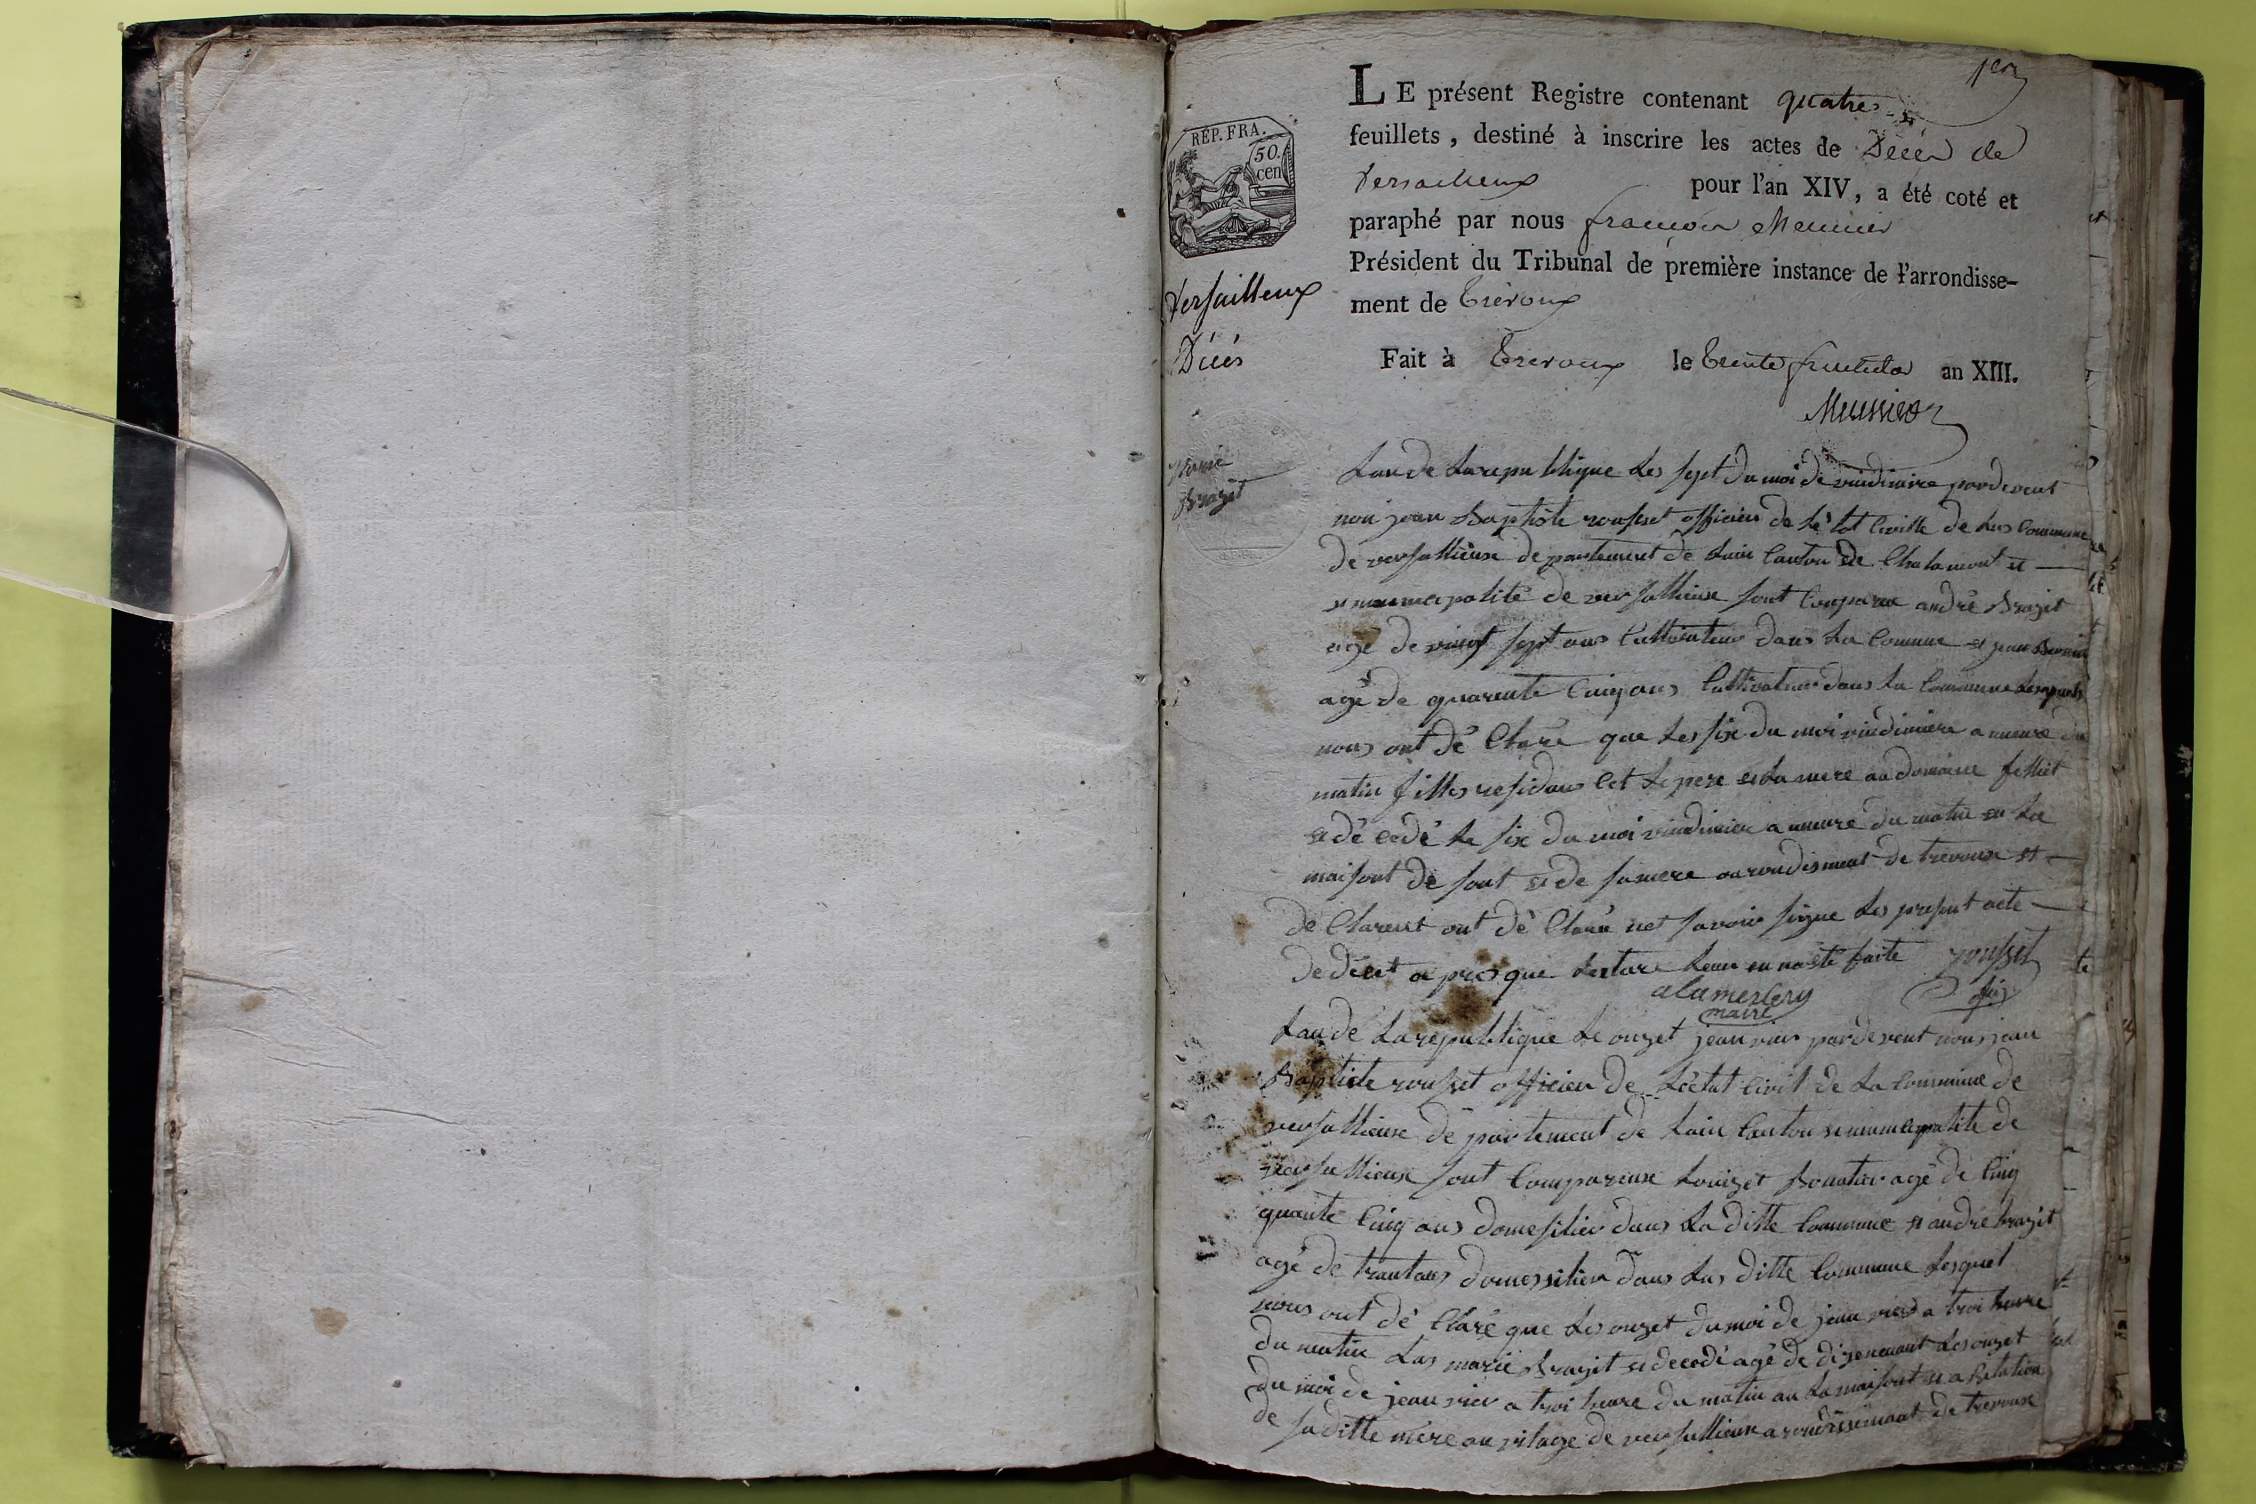 1er
LE présent Registre contenant quatre
feuillets, destiné à inscrire les actes de Décès de
Versailleux pour l'an XIV, a été coté et
paraphé par nous françois Meunier
Président du Tribunal de première instance de l'arrondisse-
ment de Trévoux
Fait à Trevoux le trente fructidor an XIII.
Meunier
RÉP. FRA.
50.
cen
Versailleux
Décès
Brazit
Lan de La republique Les sept du moi de vindimire pardevent
noü jean Baptiste rousset officier de Lé tat Civille de Las Commune
de versallieux departement de Lain Canton de Chalamont et
municipalité de versallieux sont Comparu andré Brazit
agé de vingt sept ans Cultivateur dans La Comune et jean
agé de quarente Cinq ans Cultivateur dans La Commune Lesquels
nous ont dé Claré que Les six du moi vindimiere a nueure du
matin filles residans Cet Le pere et La mere au domaine
et dé cedé Le six du moi vindimier a nueure du matin en La
maisont de sont et de sa mere arondisment de trevoux et
de Clarent ont dé Claré net savoir signe Les present acte
de décet a pres que Lecture Leur en na été faite rousset
alamercery
maire
Lan de La republique Le onzet jeanvier pardevent nous jean
Baptiste rousset officier de Létat Civil de La Commune de
versallieux de partement de Lain Canton et municipalité de
versallieux sont Compareux Louizet Bonatier agé de Cinq
quante Cinq ans domesilier dans La ditte Commune et andré brazit
agé de trantans domessilier dans Las ditte Commune Lesquel
nous ont dé Claré que Les onzet du moi de jeanvier a troi heure
du matin Las marie Brazit et decedé agé de dizeneuant Les onzet
du moi de jeanvier a troi heure du matin au La maisont et abitation
de sa ditte mere au vilage de versallieux arondissemant de trevoux